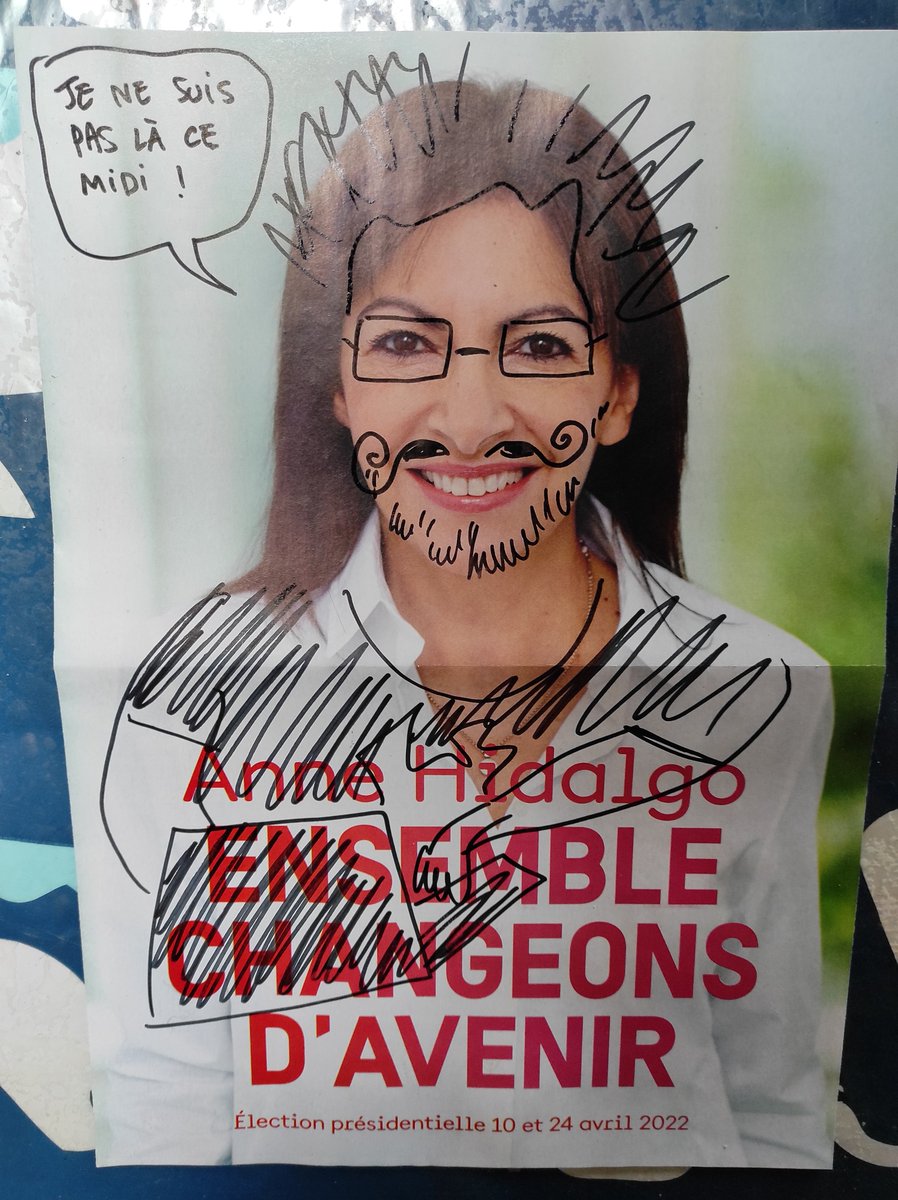 JE NE SUIS
PAS LÀ CE
MIDI !
Anne Hidalgo
ENSEMBLE
CHANGEONS
D'AVENIR
Élection présidentielle 10 et 24 avril 2022